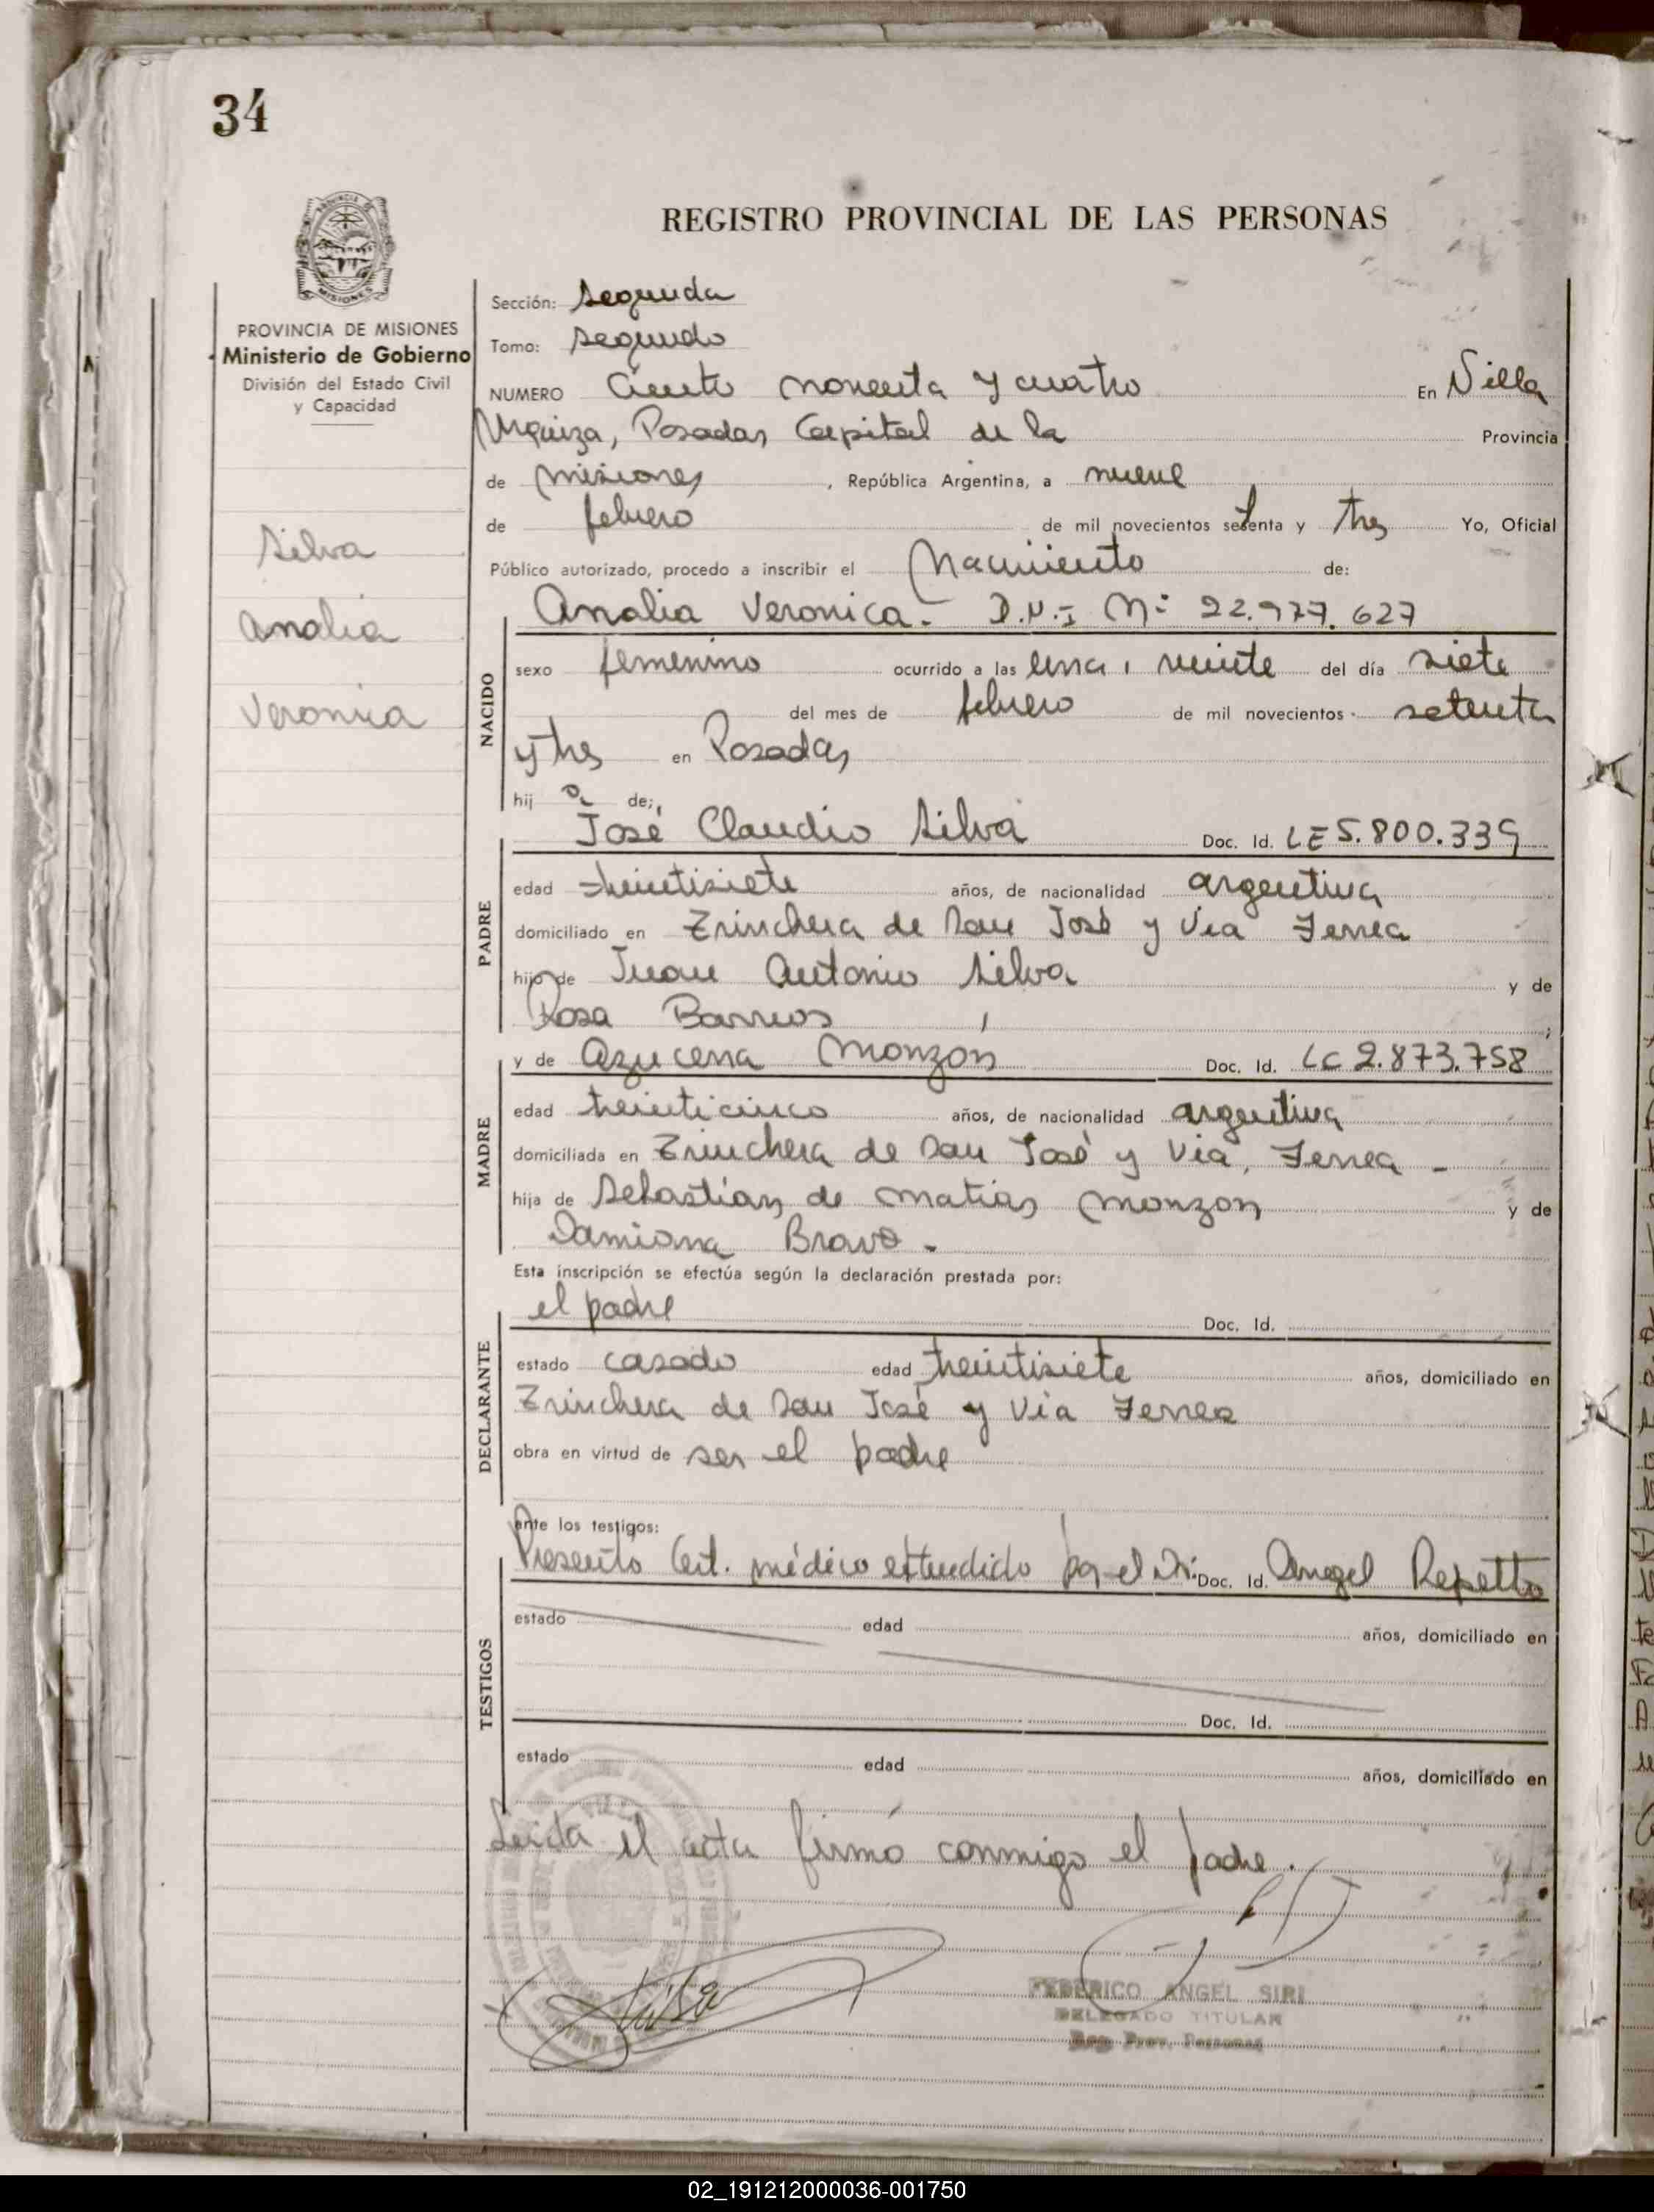 34
REGISTRO PROVINCIAL DE LAS PERSONAS
MISIONES
PROVINCIA DE MISIONES
Ministerio de Gobierno
División del Estado Civil
y Capacidad
Silva
Analia
Veronica
Sección: segunda
Tomo: segundo
NUMERO Ciento noventa y cuatro En Villa
Urquiza, Posadas Capital de la Provincia
de misiones, República Argentina, a nueve
de febrero de mil novecientos setenta y tres Yo, Oficial
Público autorizado, procedo a inscribir el Nacimiento de:
Analia Veronica.- D.N.I Nº 22.977.627
NACIDO
sexo femenino ocurrido a las una, veinte del día siete
del mes de febrero de mil novecientos setenta
y tres en Posadas
hij a de;
José Claudio Silva Doc. Id. LE 5.800.339
PADRE
edad treintisiete años, de nacionalidad argentina
domiciliado en Trinchera de San José y Via Ferrea
hijo de Juan Antonio Silva y de
Rosa Barrios ;
y de Azucena Monzon Doc. Id. LC 2.873.758
MADRE
edad treinticinco años, de nacionalidad argentina
domiciliada en Trinchera de San José y Via, Ferrea -
hija de Sebastian de Matias Monzon y de
Damiana Bravo.
Esta inscripción se efectúa según la declaración prestada por:
el padre Doc. Id.
DECLARANTE
estado casado edad treintisiete años, domiciliado en
Trinchera de San José y Via Ferrea
obra en virtud de ser el padre
ante los testigos:
Presentó Cert. médico extendido por el Dr. Doc. Id. Angel Repetto
TESTIGOS
estado edad años, domiciliado en
Doc. Id.
estado edad años, domiciliado en
Leida el acta firmó conmigo el padre.
Silva
FEDERICO ANGEL SIRI
DELEGADO TITULAR
Reg. Prov. Personas
02_191212000036-001750